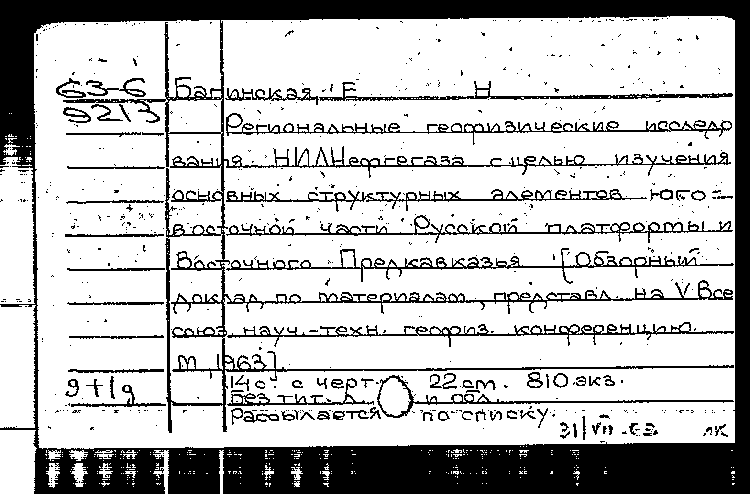 63-6
9213
Багинская, Е Н
Региональные геофизические исследо
вания НИЛНефтегаза с целью изучения
основных структурных элементов юго-
восточной части Русской платформы и
Восточного Предкавказья [Обзорный
доклад по материалам, представл. на V Все
союз. науч.-техн. геофиз. конференцию.
М, 1963].
14 с. с черт. 22 см. 810 экз.
Без тит. л. и обл.
Рассылается по списку.
9+1д
31/VII-63 ЛК